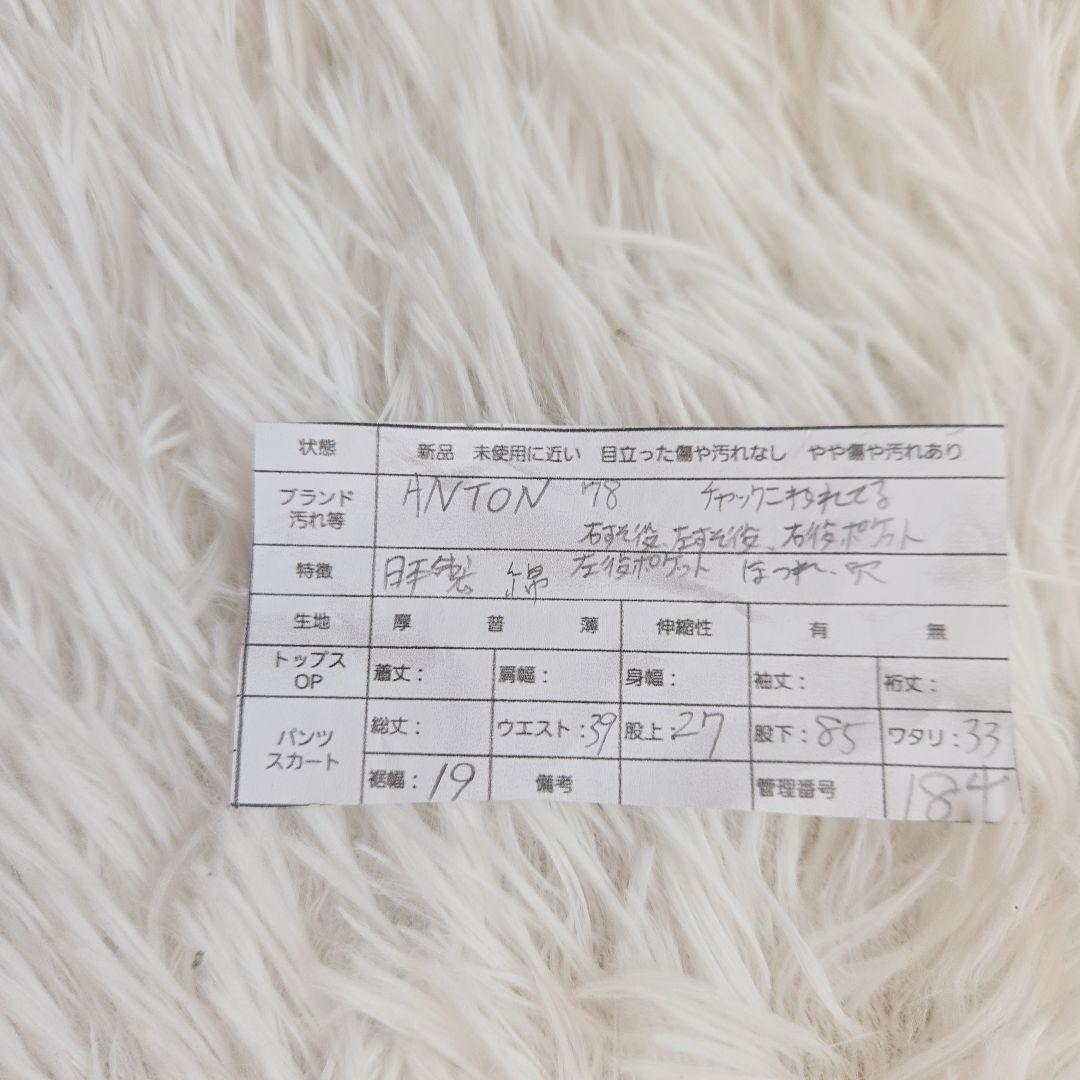 状態 新品 未使用に近い 目立った傷や汚れなし やや傷や汚れあり
ブランド 汚れ等 ANTON 78 チャックこわれてる
右すそ後、左すそ後、右後ポケット
左後ポケット ほつれ、穴
特徴 日本製 綿
生地 厚 普 薄 伸縮性 有 無
トップス OP 着丈: 肩幅: 身幅: 袖丈: 裄丈:
パンツ スカート 総丈: ウエスト:39 股上:27 股下:85 ワタリ:33
裾幅:19 備考 管理番号 184